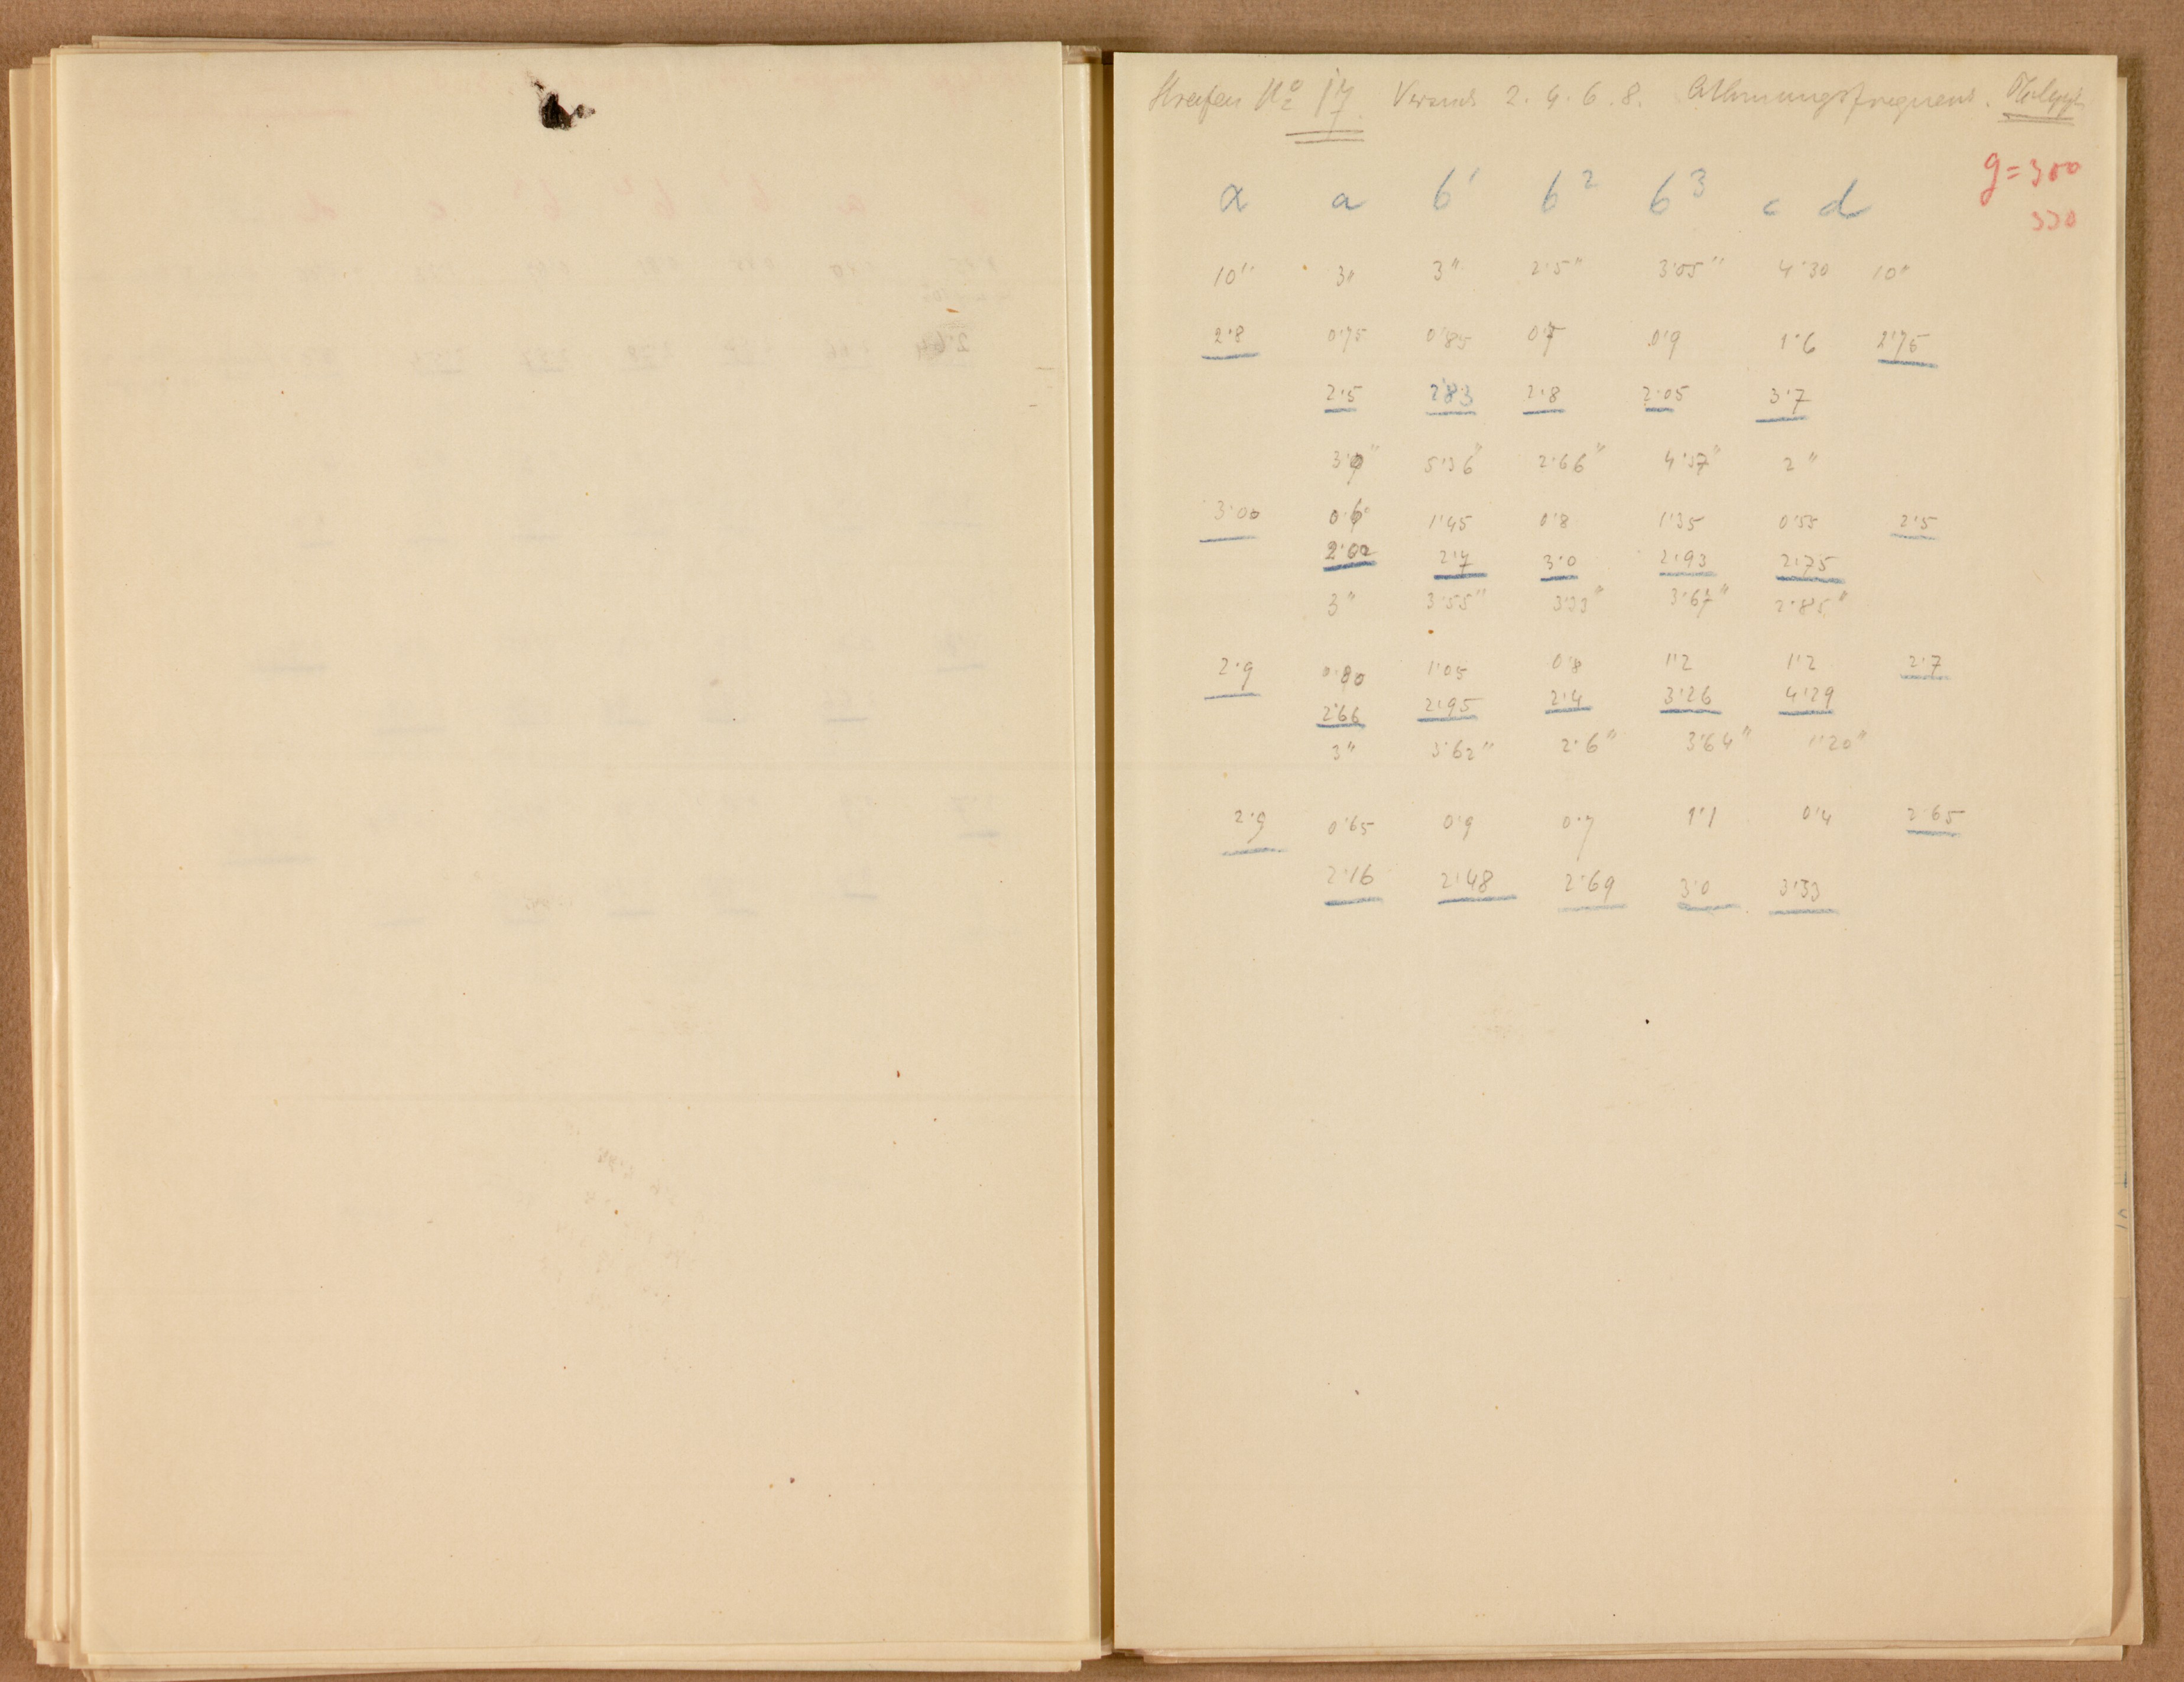 Streifen No 17. Versuch 2. 4. 6. 8. Athmungsfrequenz.
g=300
330
α a b¹ b² b³ c d
10" 3" 3" 2·5" 3·05" 4·30 10"
2·8 0·75 0·85 0·7 0·9 1·6 2·75
2·5 2·83 2·8 2·05 3·7
5·36" 2·66" 4·57" 2"
3·00 0·6 1·45 0·8 1·35 0·55 2·5
2·00 2·7 3·0 2·93 2·75
3" 3·55" 3·33" 3·67" 2·85"
2·9 0·80 1·05 0·8 1·2 1·2 2·7
2·66 2·95 2·4 3·26 4·29
3" 3·62" 2·6" 3·64" 1·20"
2·9 0·65 0·9 0·7 1·1 0·4 2·65
2·16 2·48 2·69 3·0 3·33